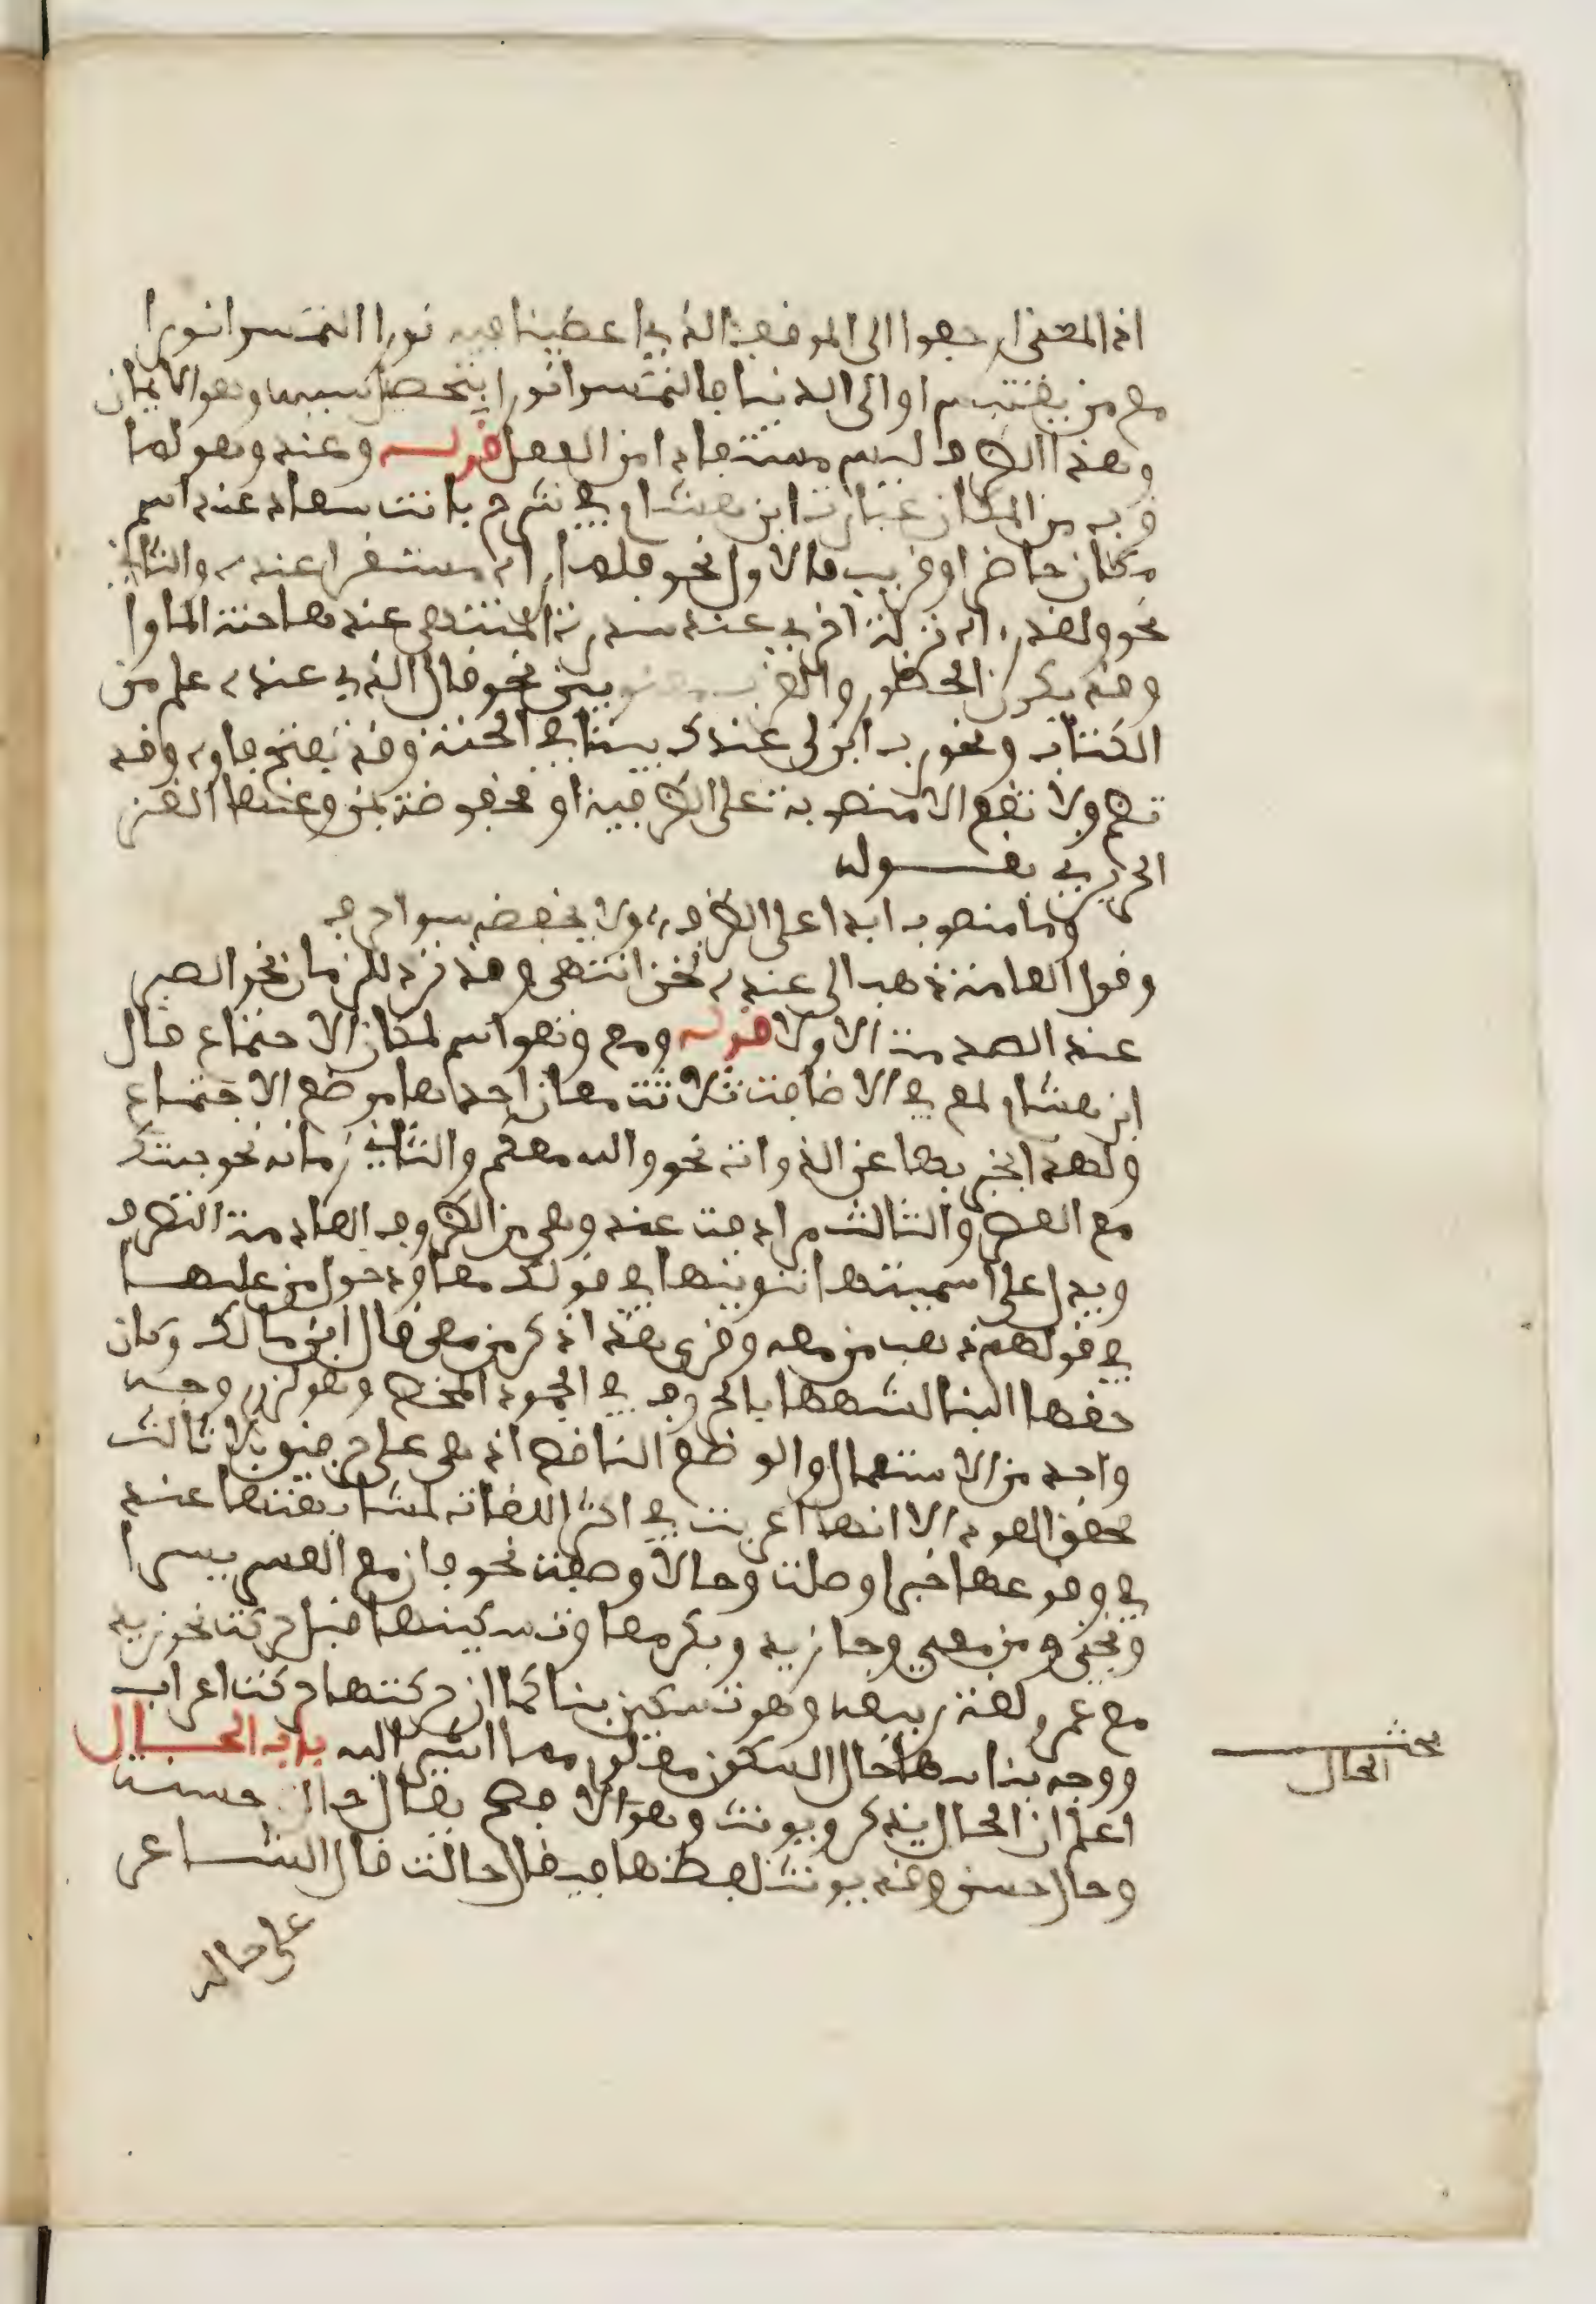 اذ المعنى ارجعوا الى الموضع الذي اعطينا فيه نورا التمسوا نورا
مع من يقتبس او الى الدنيا فالتمسوا نورا بتحصيل سببه وهو الايمان
وهذا الظرف ليس مستفادا من الفعل قوله وعند وهو لما
قرب من المكان عبارة ابن هشام في شرح بانت سعاد عند اسم
مكان حاضر او قريب فالاول نحو فلما راه مستقرا عنده والثاني
نحو ولقد راه نزلة اخرى عند سدرة المنتهى عندها جنة الماوا
وقد يكون الحضور والقرب معنويين نحو قال الذي عنده علم من
الكتاب ونحو رب ابن لي عندك بيتا في الجنة وقد تفتح فاوه وقد
تضم ولا تقع الا منصوبة على الظرفية او مخفوضة بمن وعندها الغز
الحريري بقوله
وما منصوب ابدا على الظرف ولا يخفضه سوا حرف
وقول العامة ذهب الى عنده لحن انتهى وقد ترد للزمان نحو الصبر
عند الصدمة الاولا قوله ومع وهو اسم لمكان الاجتماع قال
ابن هشام لمع في الاضافة ثلاثة معان احدها موضع الاجتماع
ولهذا يخبر بها عن الذوات نحو والله معكم والثاني زمانه نحو جئتك
مع العصر والثالث مرادفة عند وهي من الظروف العادمة التصرف
ويدل على اسميتها تنوينها في قولك معا ودخول من عليها
في قولهم ذهب من معه وقرى هذا ذكر من معي قال ابن مالك وكان
حقها البنا لشبهها بالحروف في الجمود المحض وهو لزوم وجه
واحد من الاستعمال والوضع الناقص اذ هي على حرفين بلا ثالث
محقق العود الا انها اعربت في اكثر اللغات لمشابهتها عند
في وقوعها خبرا وصلة وحالا وصفة نحو فان مع العسر يسرا
ونجني ومن معي وجا زيد وبكر معا وتسكينها قبل حركة نحو زيد
مع عمرو لغة ربيعة وهو تسكين بنا كما ان حركتها حركة اعراب
ووجه بنايها حال السكون معلوم مما اشير اليه باب الحال
اعلم ان الحال يذكر ويونث وهو الافصح يقال حال حسنة
وحال حسن وقد يونث لفظها فيقال حالة قال الشاعر
على حالة
مبحث
الحال